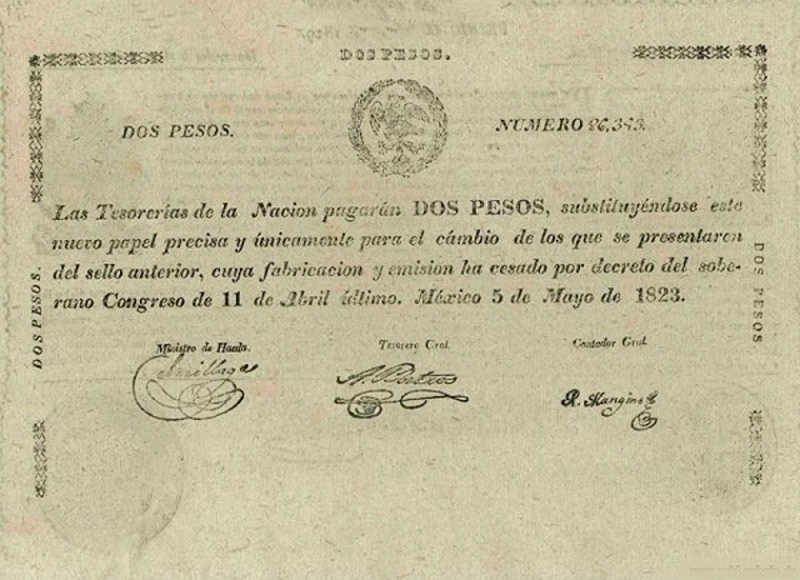 DOS PESOS.
DOS PESOS.
NUMERO 26,343.
Las Tesorerías de la Nacion pagarán DOS PESOS, substituyéndose este
nuevo papel precisa y únicamente para el cámbio de los que se presentaren
del sello anterior, cuya fabricacion y emision ha cesado por decreto del sobe-
rano Congreso de 11 de Abril último. México 5 de Mayo de 1823.
DOS PESOS.
DOS PESOS
Ministro de Hacda.
Tesorero Gral.
Contador Gral.
R. Mangino